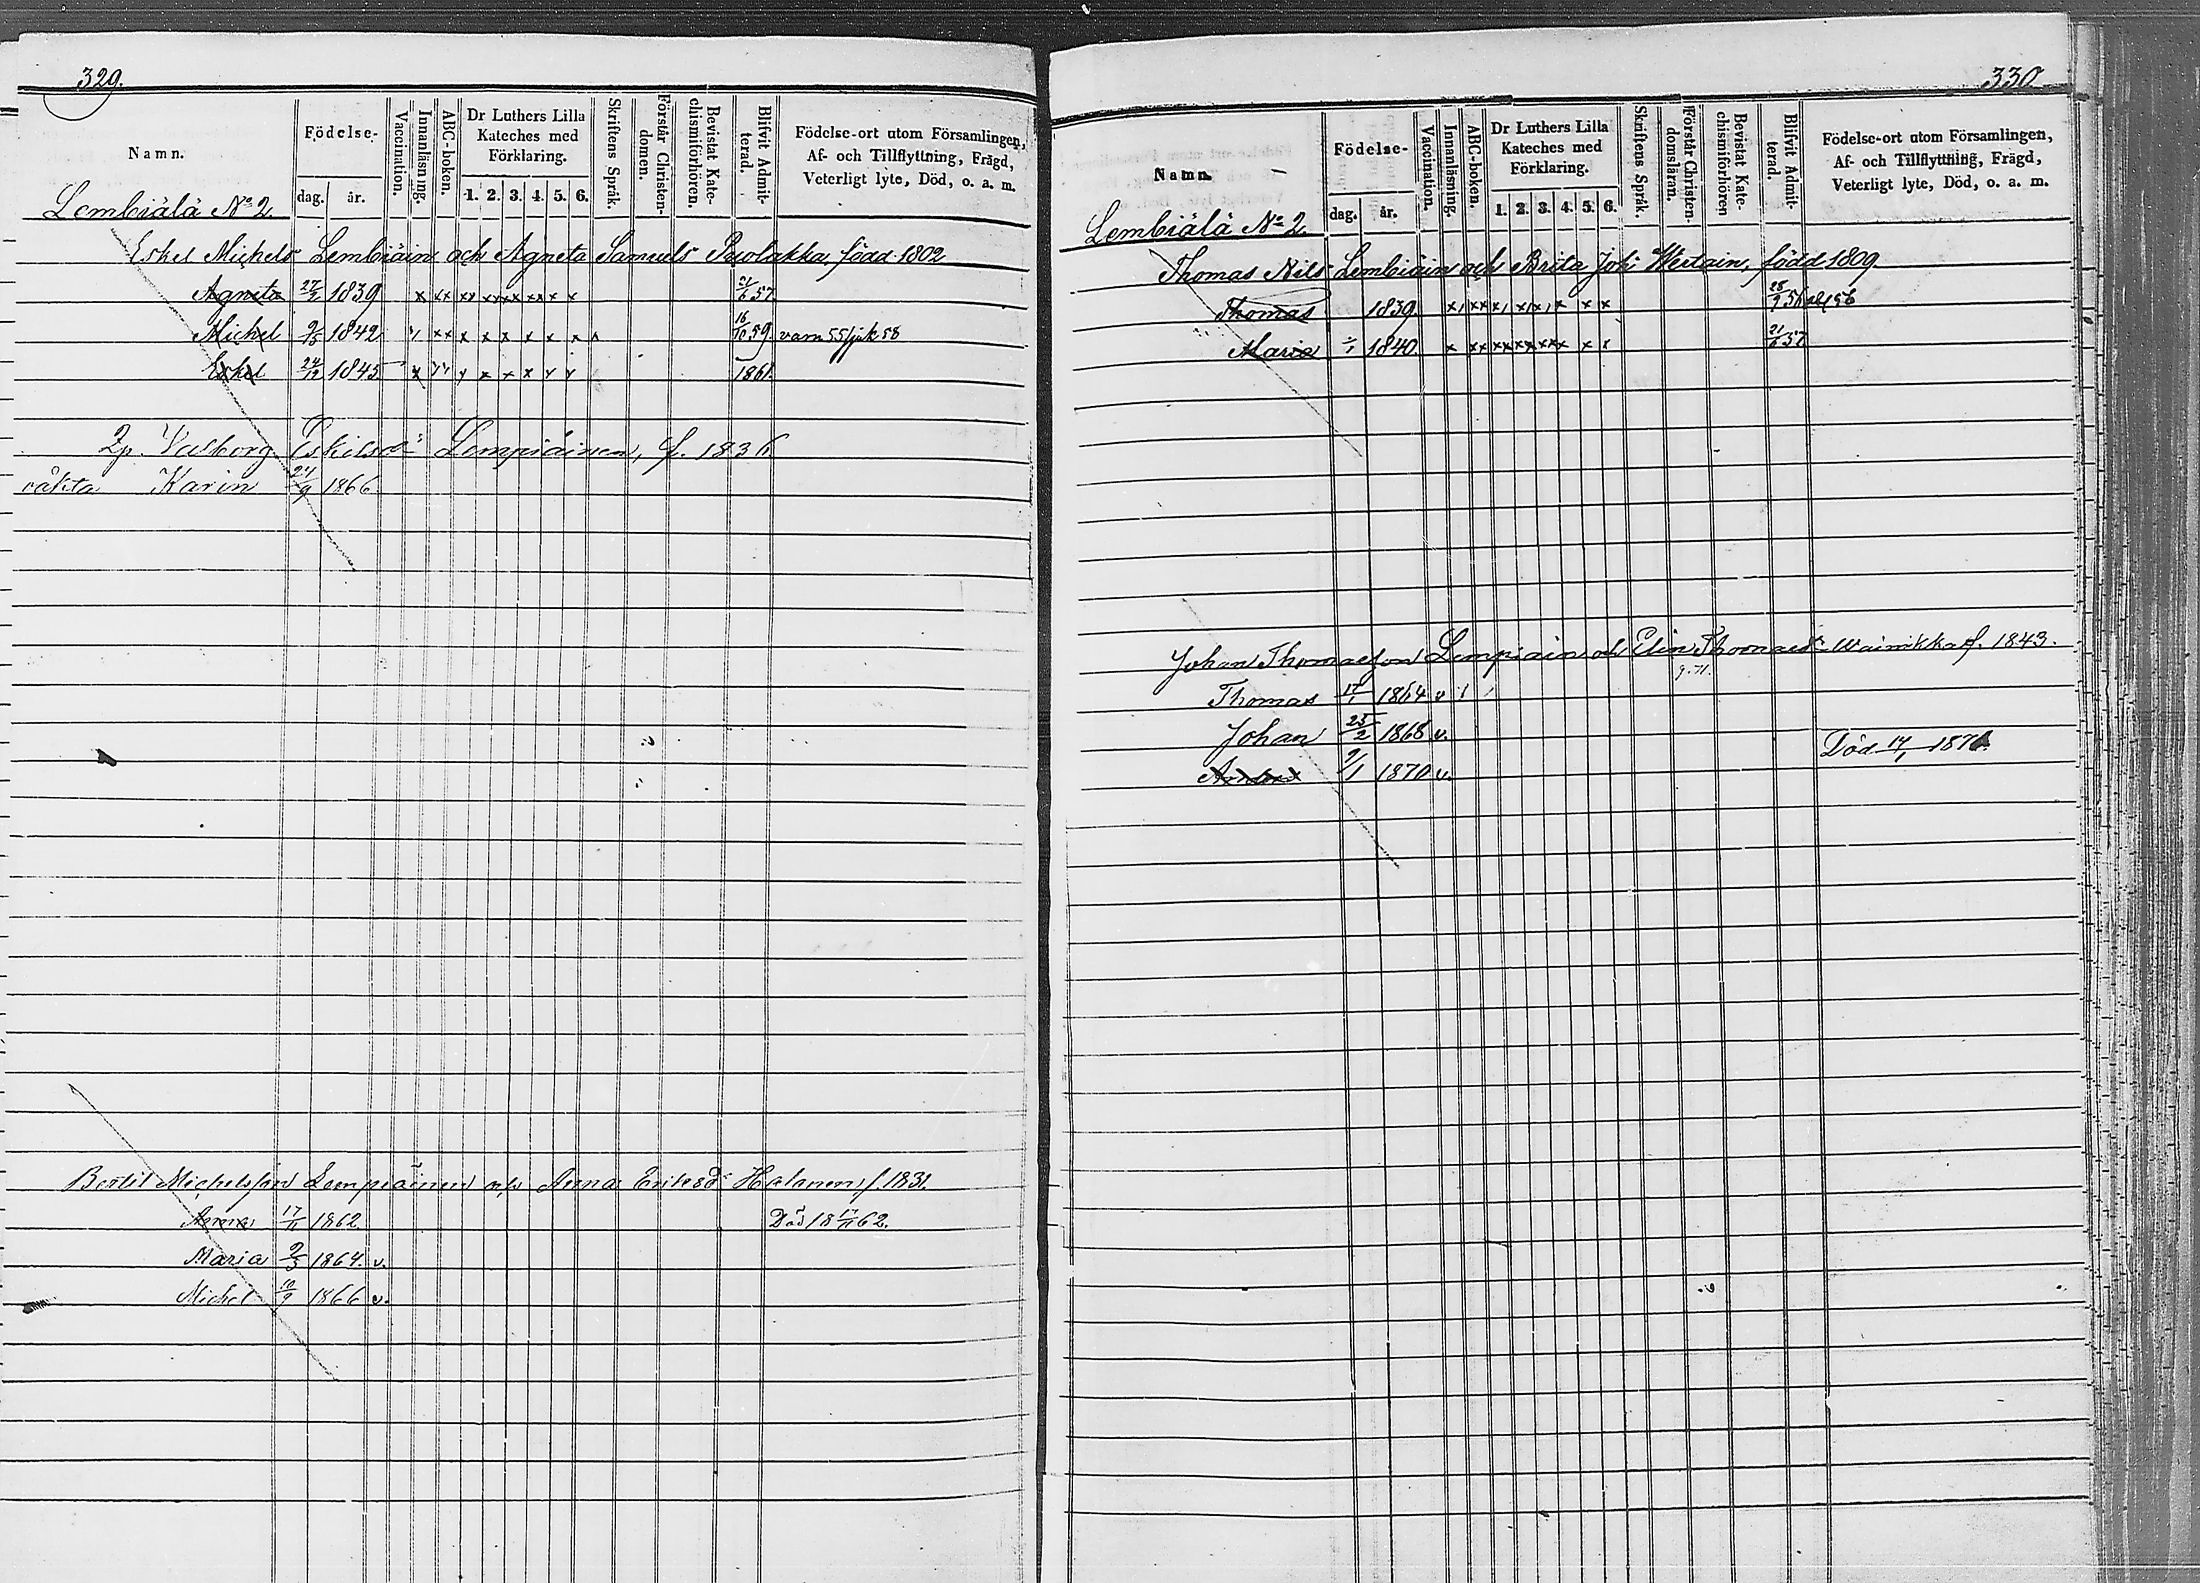 329.
Namn.
Födelse-
dag. år.
Vaccination.
Innanläsning.
ABC-boken.
Dr Luthers Lilla Kateches med Förklaring.
1. 2. 3. 4. 5. 6.
Skriftens Språk.
Förstår Christen-domen.
Bevistat Kate-chismiförhören.
Blifvit Admit-terad.
Födelse-ort utom Församlingen, Af- och Tillflyttning, Frägd, Veterligt lyte, Död, o. a. m.
Lembiälä No 2.
Eskel Michels Lembiäin och Agneta Samuels Puolakka, född 1802
Agneta 27/2 1839 x xx xx xxxx xx x x 21/6 57.
Michel 9/5 1842 x xx x x x x x x x 16/10 59. varn 55 sjuk 58
Eskel 24/12 1845 x xx x x x x x x 1861.
Lp. Valborg Eskilsdr Lempiäinen, f. 1836
oäkta Karin 21/9 1866
Bertil Michelsson Lempiäinen och Anna Eriksdr Halanen, f. 1831.
Anna 17/11 1862 Död 18 17/11 62.
Maria 9/3 1864. v.
Michel 10/9 1866 v.
330
Namn.
Födelse-
dag. år.
Vaccination.
Innanläsning.
ABC-boken.
Dr Luthers Lilla Kateches med Förklaring.
1. 2. 3. 4. 5. 6.
Skriftens Språk.
Förstår Christen-domsläran.
Bevistat Kate-chismiförhören
Blifvit Admit-terad.
Födelse-ort utom Församlingen, Af- och Tillflyttning, Frägd, Veterligt lyte, Död, o. a. m.
Lembiälä No 2.
Thomas Nils Lembiäin och Brita Joh: Wertain, född 1809
Thomas 1839. x xx x x x x x x 28/9 56
Maria 1840. x xx xx xx xx x x x 21/6 57
Johan Thomasson Lempiain och Elin Thomasdr Wainikka f. 1843.
g. 71.
Thomas 17/1 1864 v
Johan 25/2 1868 v.
9/1 1870 v. Död 17/1 1871.